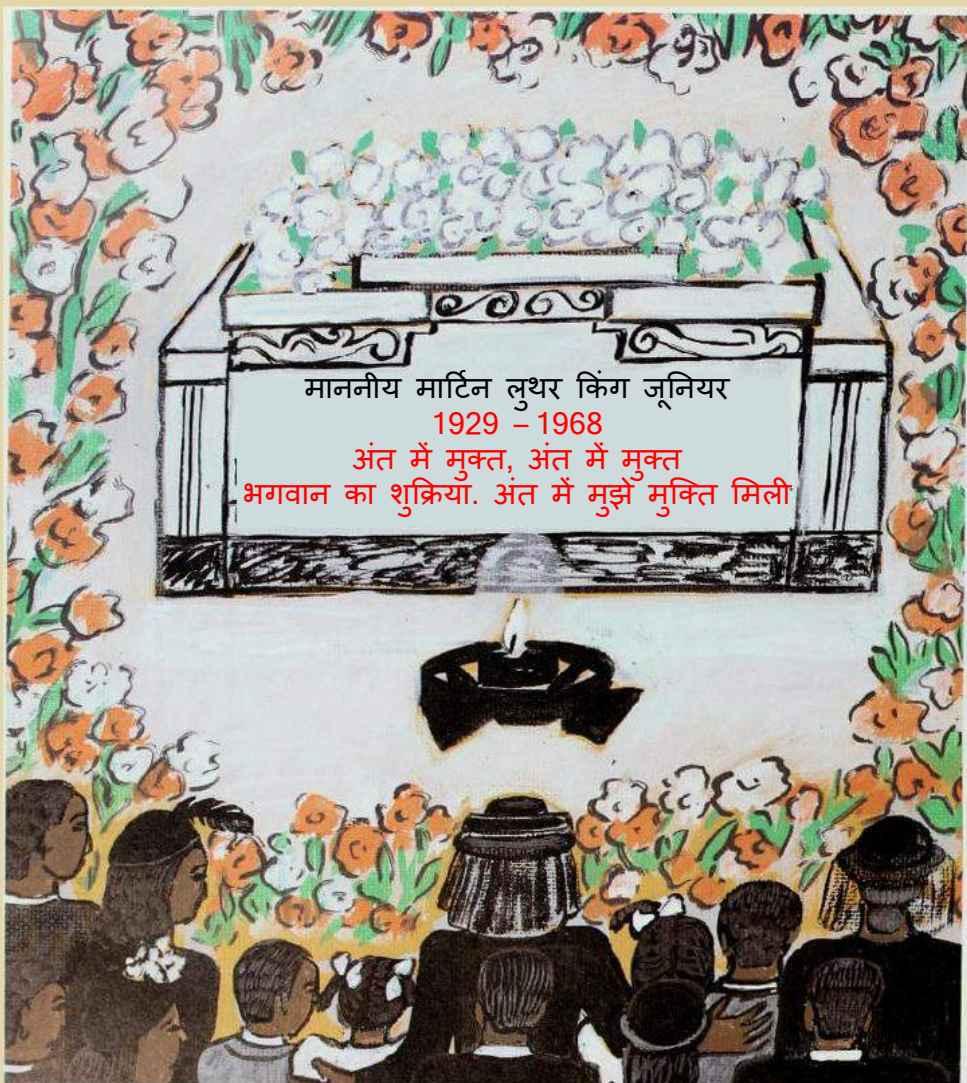 माननीय मार्टिन लुथर किंग जूनियर
1929 – 1968
अंत में मुक्त, अंत में मुक्त
भगवान का शुक्रिया. अंत में मुझे मुक्ति मिली